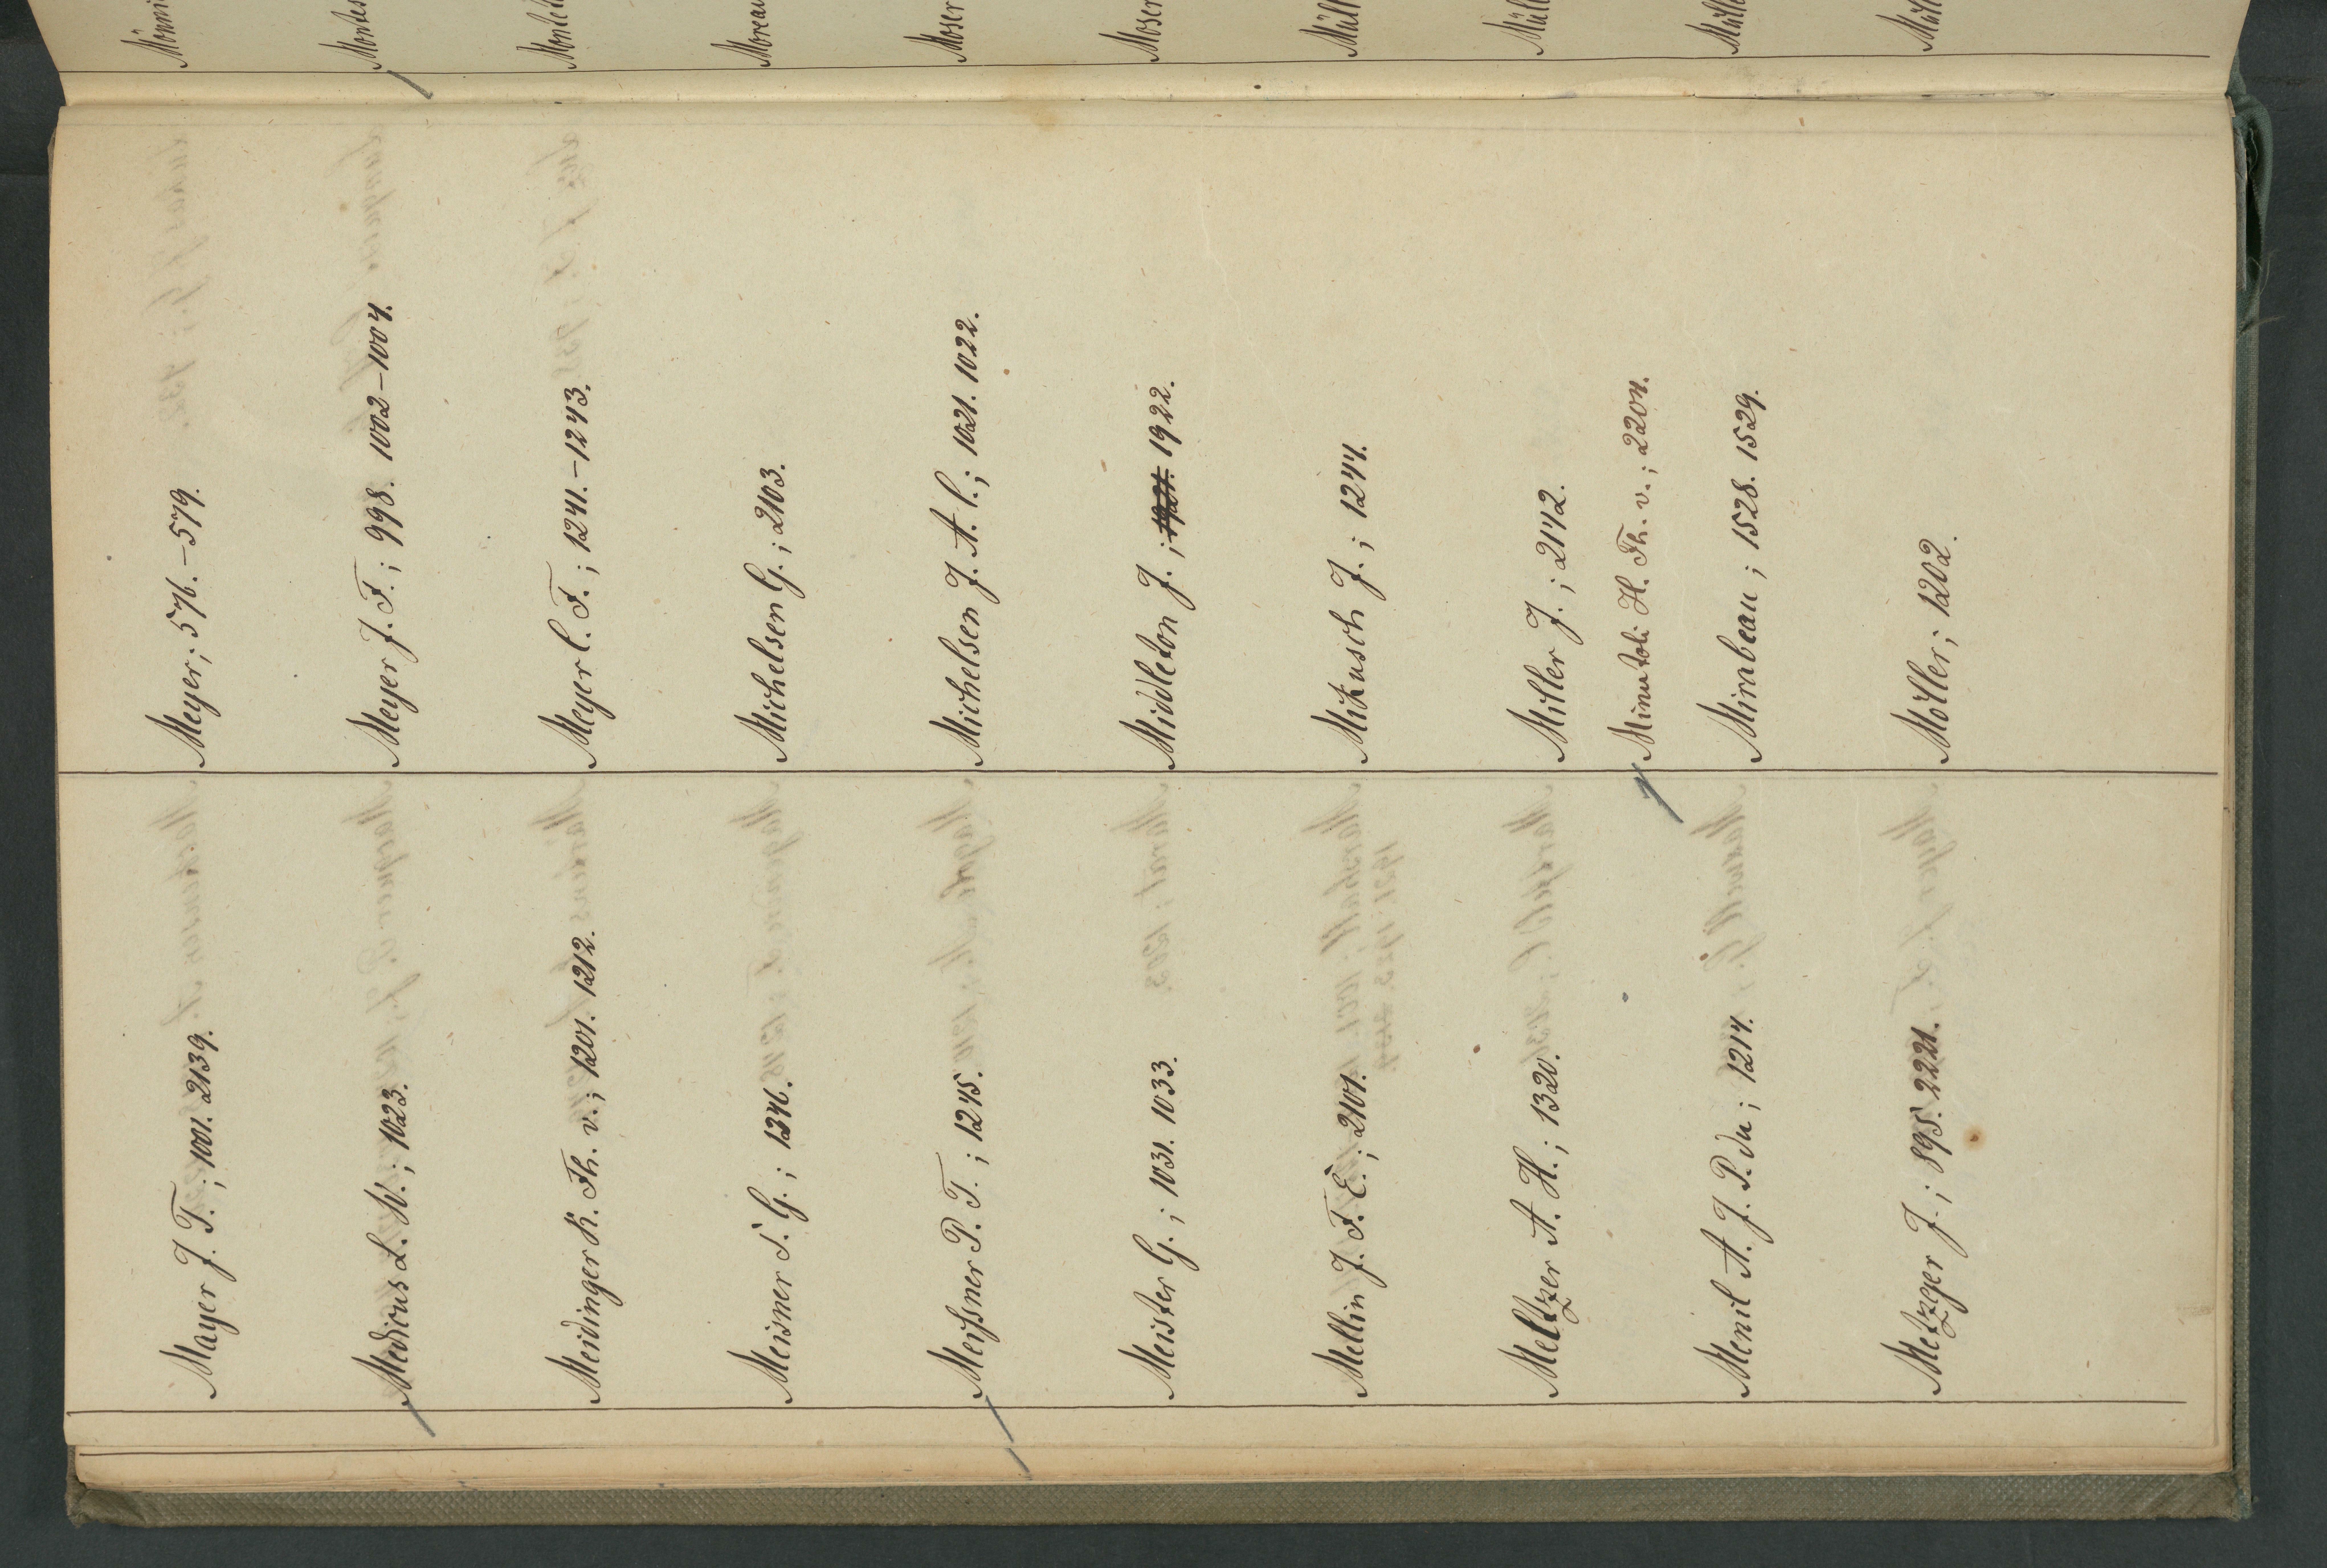 Mayer J. T.; 1001. 2139.
Medicus L. W.; 1023.
Meidinger K. Fh. v.; 1201. 1212.
Meisner S. G.; 1346.
Meißner P. T.; 1245.
Meister G.; 1031. 1033.
Mellin J. F. E.; 2101.
Meltzer A. H.; 1320.
Menil A. J. P. du; 1214.
Metzger J.; 895. 2221.
Meyer; 576.–579.
Meyer J. F.; 998. 1002–1004.
Meyer C. F.; 1241.–1243.
Michelsen G.; 2103.
Michelsen J. A. C.; 1021. 1022.
Middleton J.; 1921. 1922.
Mikusch J.; 1244.
Miller J.; 2142.
Minutoli H. Fh. v.; 2204.
Mirabeau; 1528. 1529.
Möller; 1202.
Mönni
Montes
Montet
Moreau
Moser
Moser
Müll
Müll
Mülle
Müll